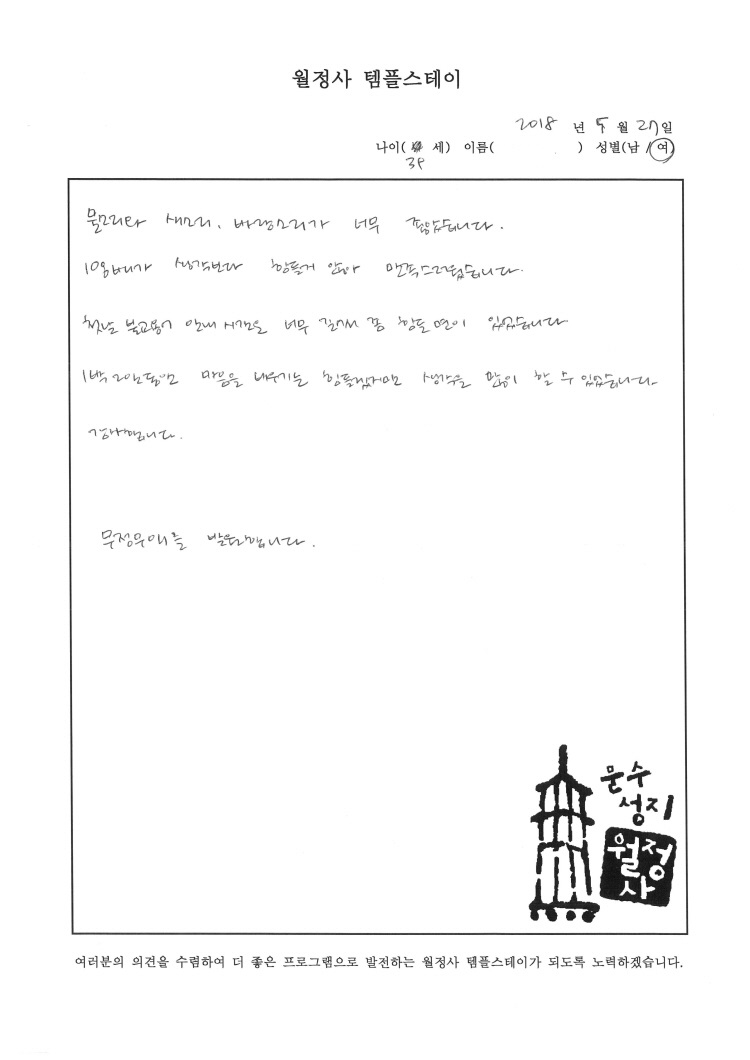 월정사 템플스테이
2018 년 5 월 27 일
나이( 세) 이름( ) 성별(남 / 여)
39
물소리와 새소리, 바람소리가 너무 좋았습니다.
108배가 생각보다 힘들지 않아 만족스러웠습니다.
첫날 불교용어 안내 시간은 너무 길어서 좀 힘든 면이 있었습니다
1박 2일동안 마음을 비우기는 힘들었지만 생각을 많이 할 수 있었습니다.
감사합니다.
무정우애를 발원합니다.
문수
성지
월정
사
여러분의 의견을 수렴하여 더 좋은 프로그램으로 발전하는 월정사 템플스테이가 되도록 노력하겠습니다.